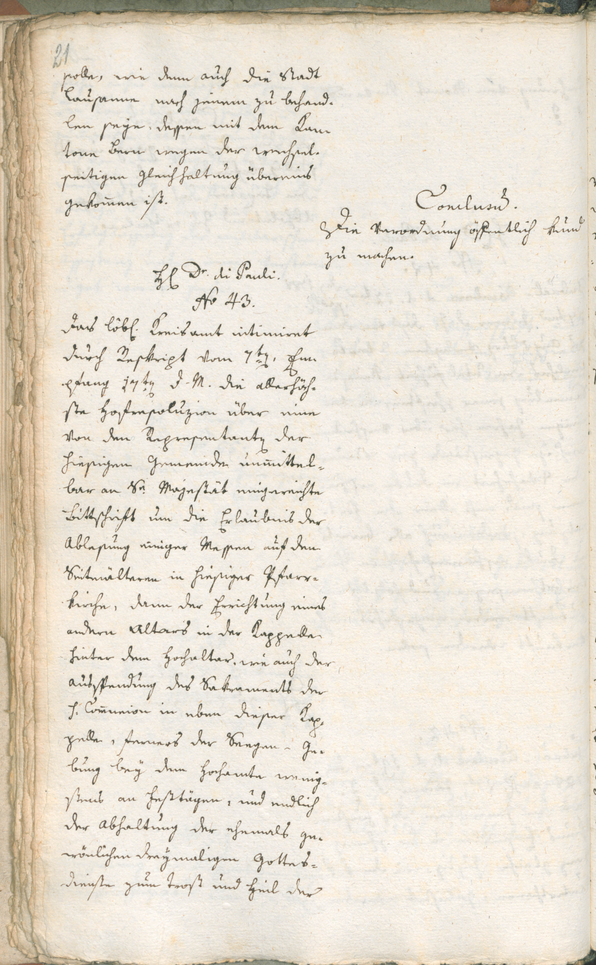 21
solle, wie denn auch die Stadt
Lausanne nach jenem zu behand-
len seye, dessen mit dem Kan-
tone Bern wegen der wechsel-
seitigen Gleichhaltung übereins
gekomen ist.
Conclusum.
Die Verordnung öffentlich kund
zu machen.
H. Dr. di Pauli.
No 43.
Das löbl. Kreisamt intimiret
durch Reskript vom 7ten, Em-
pfang 17ten d. M. die allerhöch-
ste Hofresoluzion über eine
von den Representanten der
hiesigen Gemeinde unmittel-
bar an Se Majestät eingereichte
Bittschrift um die Erlaubnis der
Ablesung einiger Messen auf den
Seitenältären in hiesiger Pfarr-
kirche, dann der Errichtung eines
andern Altars in der Kappelle
hinter dem Hochaltar, wie auch der
Ausspendung des Sakraments der
h. Comunion in eben dieser Kap-
pelle, ferners der Seegen-Ge-
bung bey dem Hochamte wenig-
stens an Festtägen, und endlich
der Abhaltung der ehemals ge-
wönlichen dreymaligen Gottes-
dienste zum Trost und Heil der